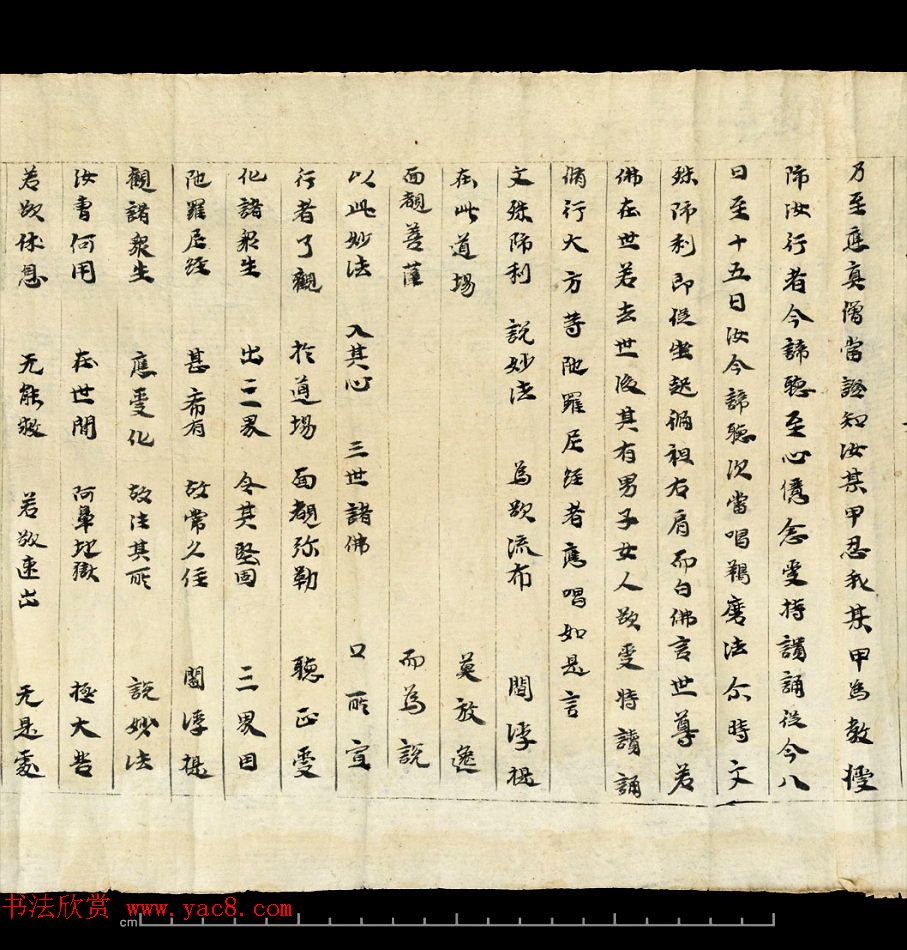 乃至應真僧當證知汝某甲忍我某甲為教授
師汝行者今諦聽至心憶念受持讀誦從今八
日至十五日汝今諦聽次當唱羯磨法尒時文
殊師利即從坐起偏袒右肩而白佛言世尊若
佛在世若去世後其有男子女人欲受持讀誦
脩行大方等陁羅尼經者應唱如是言
文殊師利 說妙法 為欲流布 閻浮提
在此道場 莫放逸
面覩菩薩 而為說
以此妙法 入其心 三世諸佛 口所宣
行者了觀 於道場 面覩弥勒 聽正受
化諸眾生 出三界 令其堅固 三界因
陁羅尼經 甚希有 故常久住 閻浮提
觀諸眾生 應受化 故法其所 說妙法
汝書何用 在世間 阿鼻地獄 極大苦
若欲休息 无能救 若欲速出 无是處
书法欣赏 www.yac8.com
cm